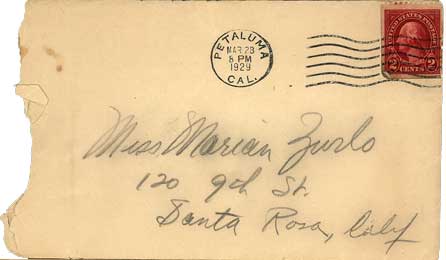 PETALUMA
MAR 28
8 PM
1929
CAL.
UNITED STATES POSTAGE
2 CENTS 2
Miss Marian Zurlo
120 9th St.
Santa Rosa, Calif